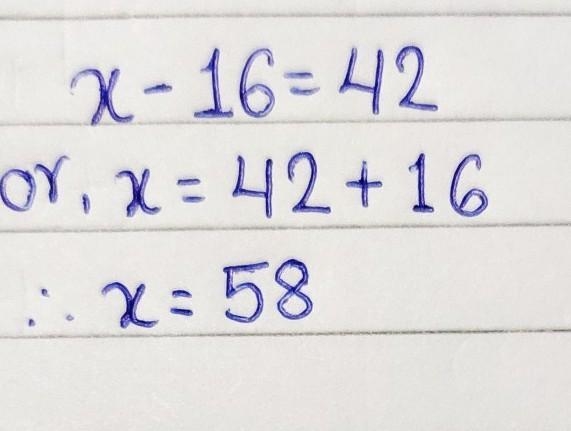 x - 16 = 42
or, x = 42 + 16
∴ x = 58